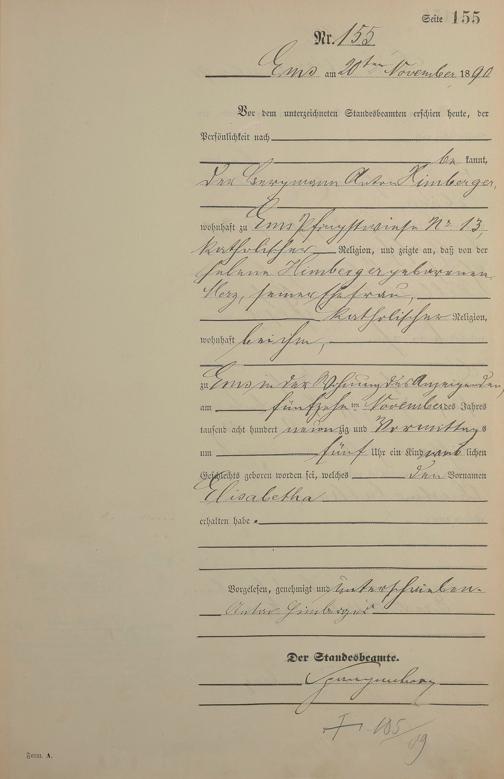 Seite 155
Nr. 155
Ems am 20ten November 1890
Vor dem unterzeichneten Standesbeamten erschien heute, der
Persönlichkeit nach
be kannt,
der Bergmann Anton Himberger,
wohnhaft zu Ems Pfingstwiese No 13,
katholischer Religion, und zeigte an, daß von der
Helene Himberger geborenen
Herz, seiner Ehefrau,
katholischer Religion,
wohnhaft bei ihm,
zu Ems in der Wohnung des Anzeigenden,
am fünfzehn ten November des Jahres
tausend acht hundert neunzig und Vormittags
um fünf Uhr ein Kind weib lichen
Geschlechts geboren worden sei, welches den Vornamen
Elisabetha
erhalten habe.
Vorgelesen, genehmigt und unterschrieben.
Anton Himberger
Der Standesbeamte.
+ 105/09
Form. A.